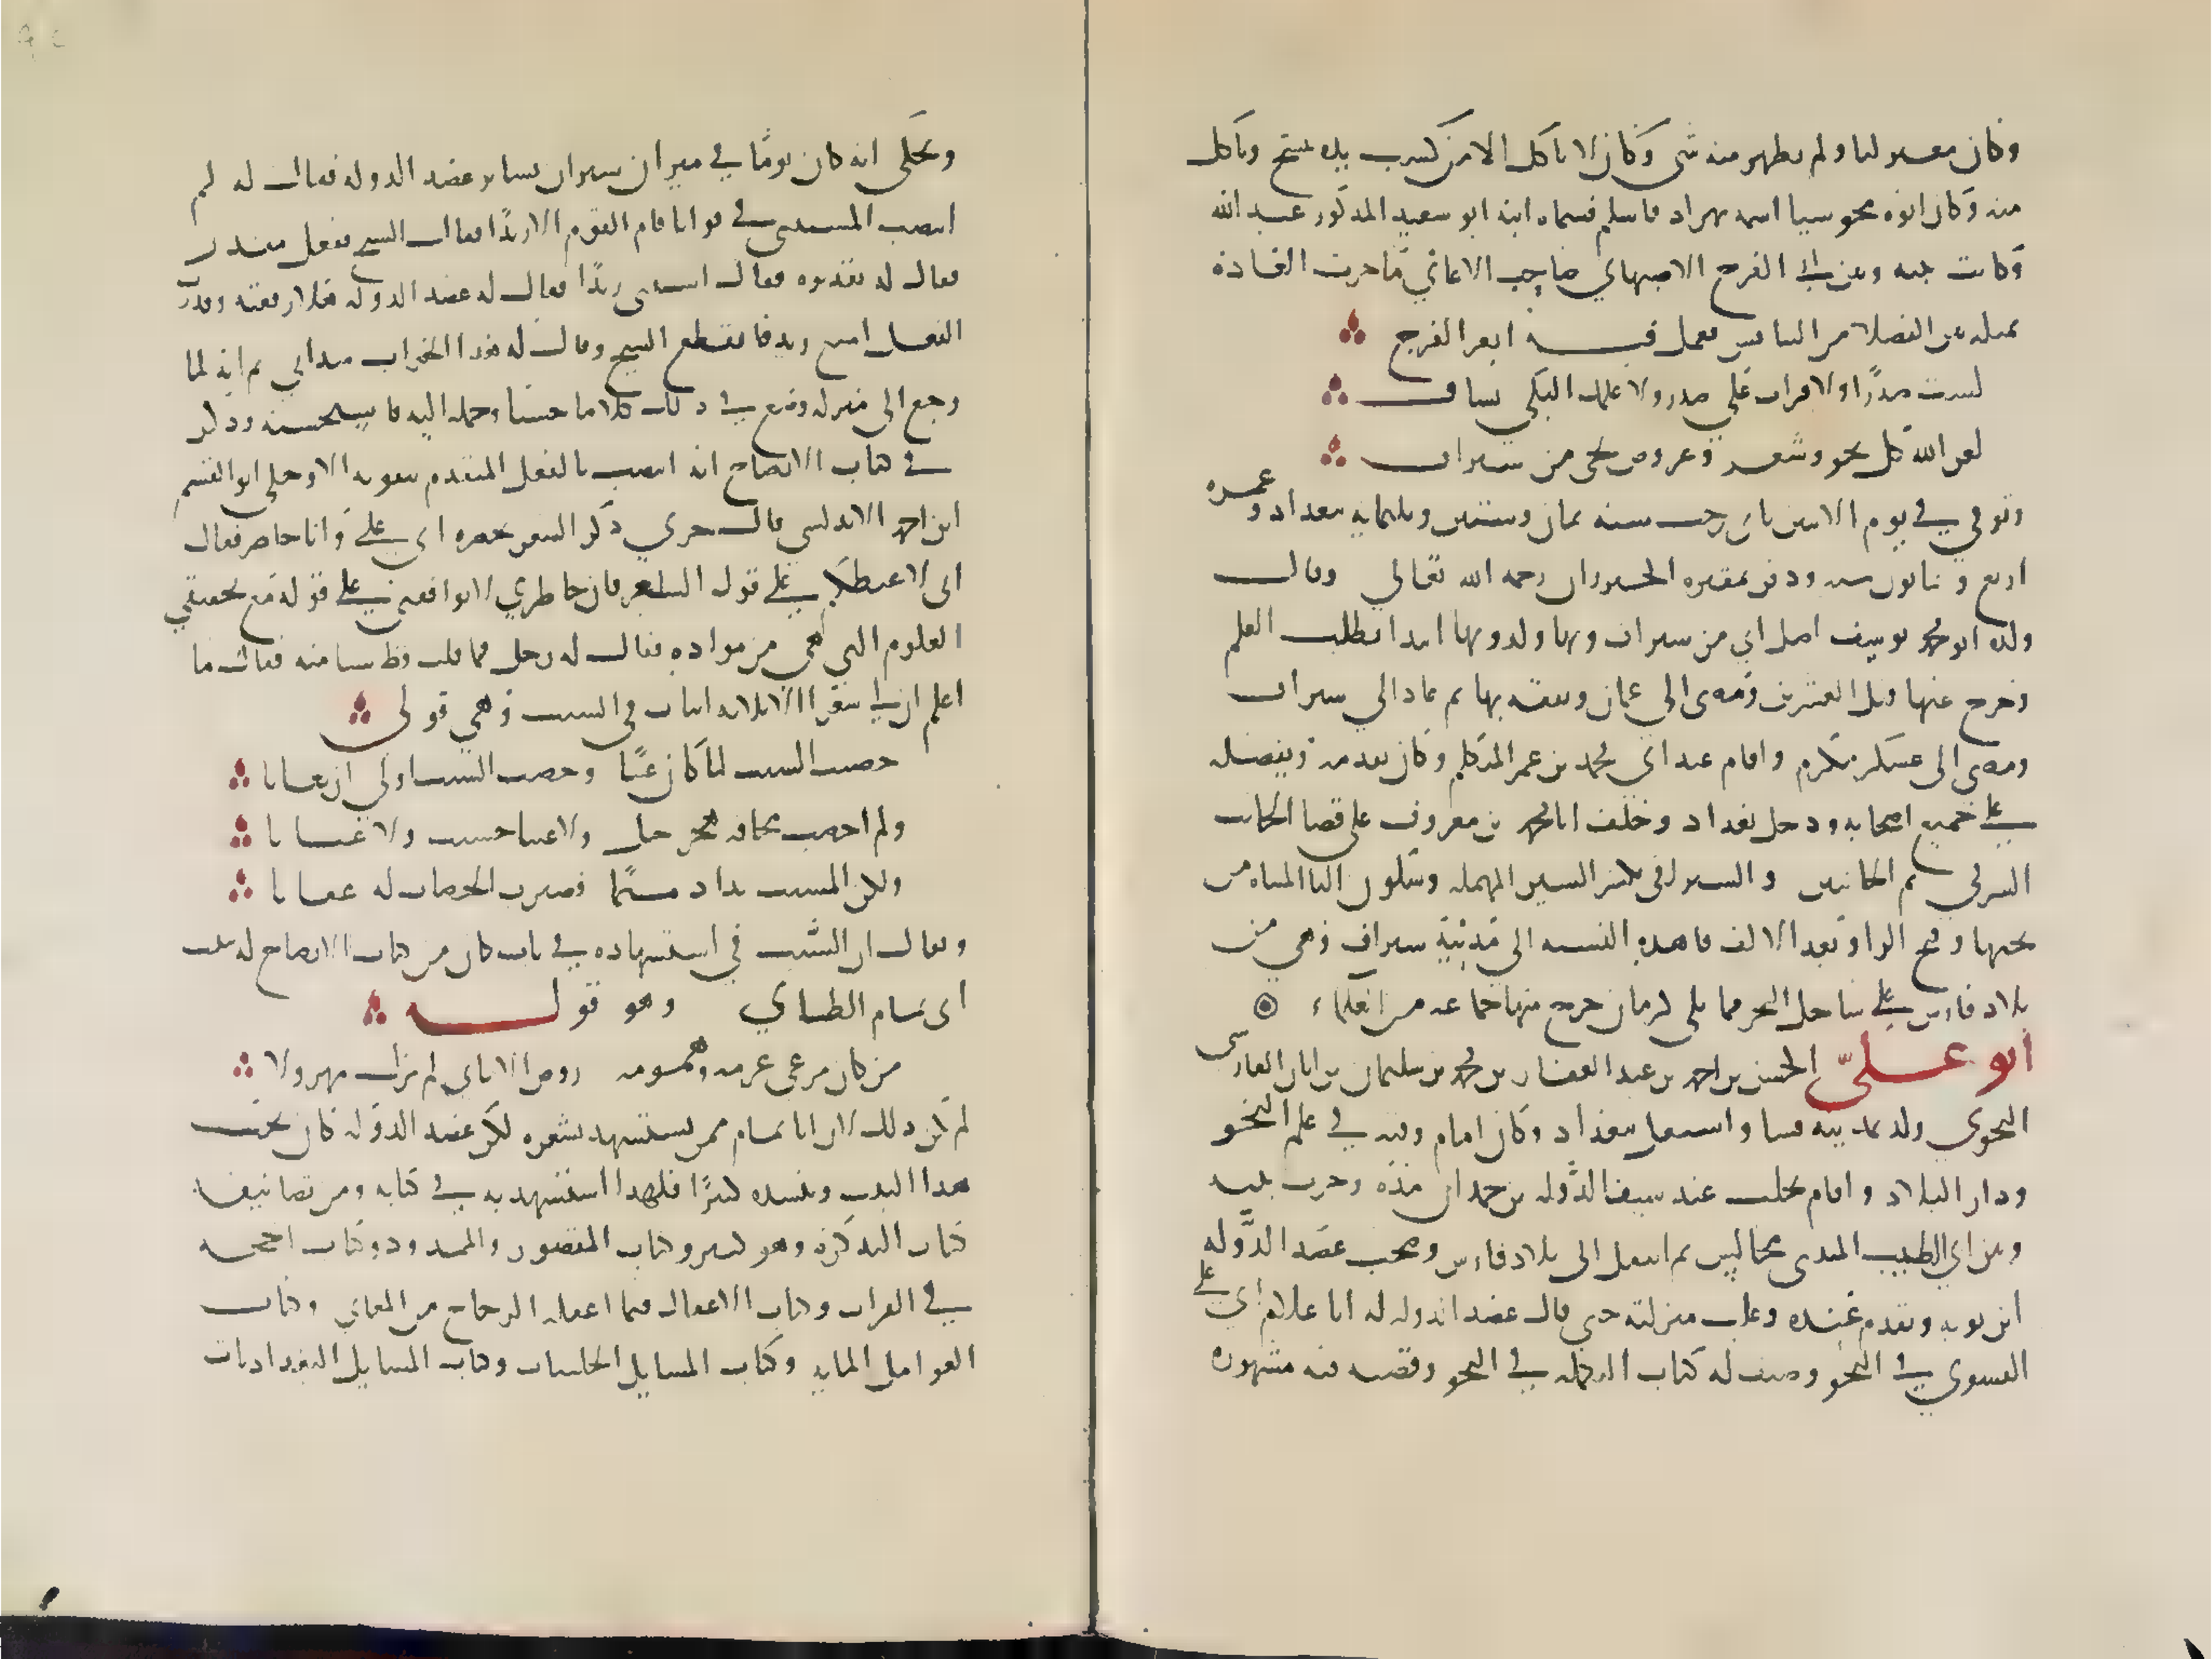 وكان معتزليا ولم يظهر منه شي وكان لا ياكل الا من كسب يده ينسخ وياكل
منه وكان ابوه مجوسيا اسمه بهزاد فاسلم فسماه ابنه ابو سعيد المذكور عبد الله
وكانت بينه وبين ابي الفرج الاصبهاني صاحب الاغاني ما جرت العادة
بمثله بين الفضلا من التنافس فعمل فيه ابو الفرج
لست صدرا ولا قرات على صدر ولا علمك البكي بساف
لعن الله كل نحو وشعر وعروض يجي من سيراف
وتوفي في يوم الاثنين ثاني رجب سنه ثمان وستين وثلثمايه ببغداد وعمره
اربع وثمانون سنه ودفن بمقبره الخيزران رحمه الله تعالى وقال
ولده ابو محمد يوسف اصل ابي من سيراف وبها ولد وبها ابتدا بطلب العلم
وخرج عنها قبل العشرين ومضى الى عمان وتفقه بها ثم عاد الى سيراف
ومضى الى عسكر مكرم واقام عند ابي محمد بن عمر المتكلم وكان يقدمه ويفضله
على جميع اصحابه ودخل بغداد وخلف ابا محمد بن معروف على قضا الجانب
الشرقي ثم الجانبين والسيرافي بكسر السين المهمله وسكون اليا المثناه من
تحتها وفتح الرا وبعد الالف فا هذه النسبه الى مدينة سيراف وهي من
بلاد فارس على ساحل البحر مما يلي كرمان خرج منها جماعه من العلماء
ابو علي الحسن بن احمد بن عبد الغفار بن محمد بن سليمان بن ابان الفارسي
النحوي ولد بمدينه فسا واشتغل ببغداد وكان امام وقته في علم النحو
ودار البلاد واقام بحلب عند سيف الدوله بن حمدان مده وجرت بينه
وبين ابي الطيب المتنبي مجالس ثم انتقل الى بلاد فارس وصحب عضد الدوله
ابن بويه وتقدم عنده وعلت منزلته حتى قال عضد الدوله له انا غلام ابي علي
الفسوي في النحو وصنف له كتاب التكمله في النحو وقصته فيه مشهوره
ويحكى انه كان يوما في ميدان سيران يساير عضد الدوله فقال له لم
انتصب المستثنى في قولنا قام القوم الا زيدا فقال الشيخ بفعل مقدر
فقال له تقديره فقال استثنى زيدا فقال له عضد الدوله هلا رفعته وقدرت
الفعل امتنع زيد فانقطع الشيخ وقال له هذا الجواب ميداني ثم انه لما
رجع الى منزله وضع في ذلك كلاما حسنا وحمله اليه فاستحسنه وذكر
في كتاب الايضاح انه انتصب بالفعل المتقدم بتقويه الا وحكى ابو القسم
ابن احمد الاندلسي قال جرى ذكر الشعر بحضره ابي علي وانا حاضر فقال
اني لاغبطكم على قول الشعر فان خاطري لا يوافقني على قوله مع تحقيقي
العلوم التي هي من مواده فقال له رجل فما قلت قط شيا منه فقال ما
اعلم ان لي شعرا الا ثلاثه ابيات في الشيب وهي قولي
خضبت الشيب لما كان عيبا وخضب الشيب اولى ان يعابا
ولم اخضب مخافه هجر خل ولا عيبا خشيت ولا عتابا
ولكن المشيب بدا ذميما فصيرت الخضاب له عقابا
ويقال ان السبب في استشهاده في باب كان من كتاب الايضاح له ببيت
ابي تمام الطائي وهو قوله
من كان مرعى عزمه وهمومه روض الاماني لم يزل مهزولا
لم يكن ذلك لان ابا تمام ممن يستشهد بشعره لكن عضد الدوله كان يحب
هذا البيت وينشده كثيرا فلهذا استشهد به في كتابه ومن تصانيفه
كتاب التذكره وهو كبير وكتاب المقصور والممدود وكتاب الحجه
في القراات وكتاب الاغفال فيما اغفله الزجاج من المعاني وكتاب
العوامل المايه وكتاب المسايل الحلبيات وكتاب المسايل البغداديات